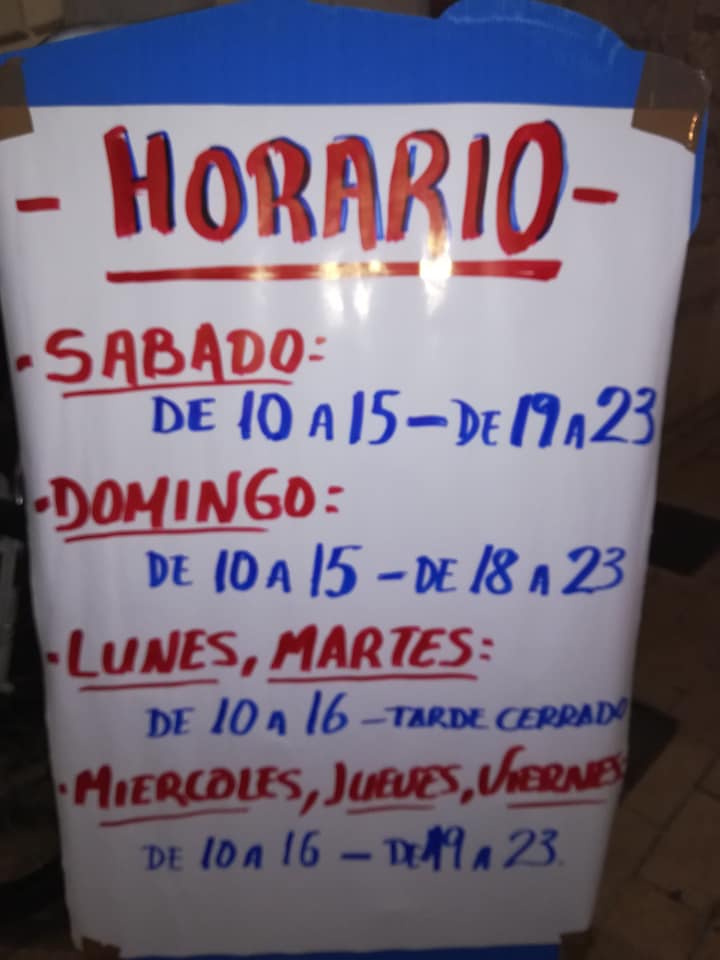 - HORARIO -
- SABADO:
DE 10 A 15 - DE 19 A 23
- DOMINGO:
DE 10 A 15 - DE 18 A 23
- LUNES, MARTES:
DE 10 A 16 - TARDE CERRADO
- MIERCOLES, JUEVES, VIERNES:
DE 10 A 16 - DE 19 A 23.